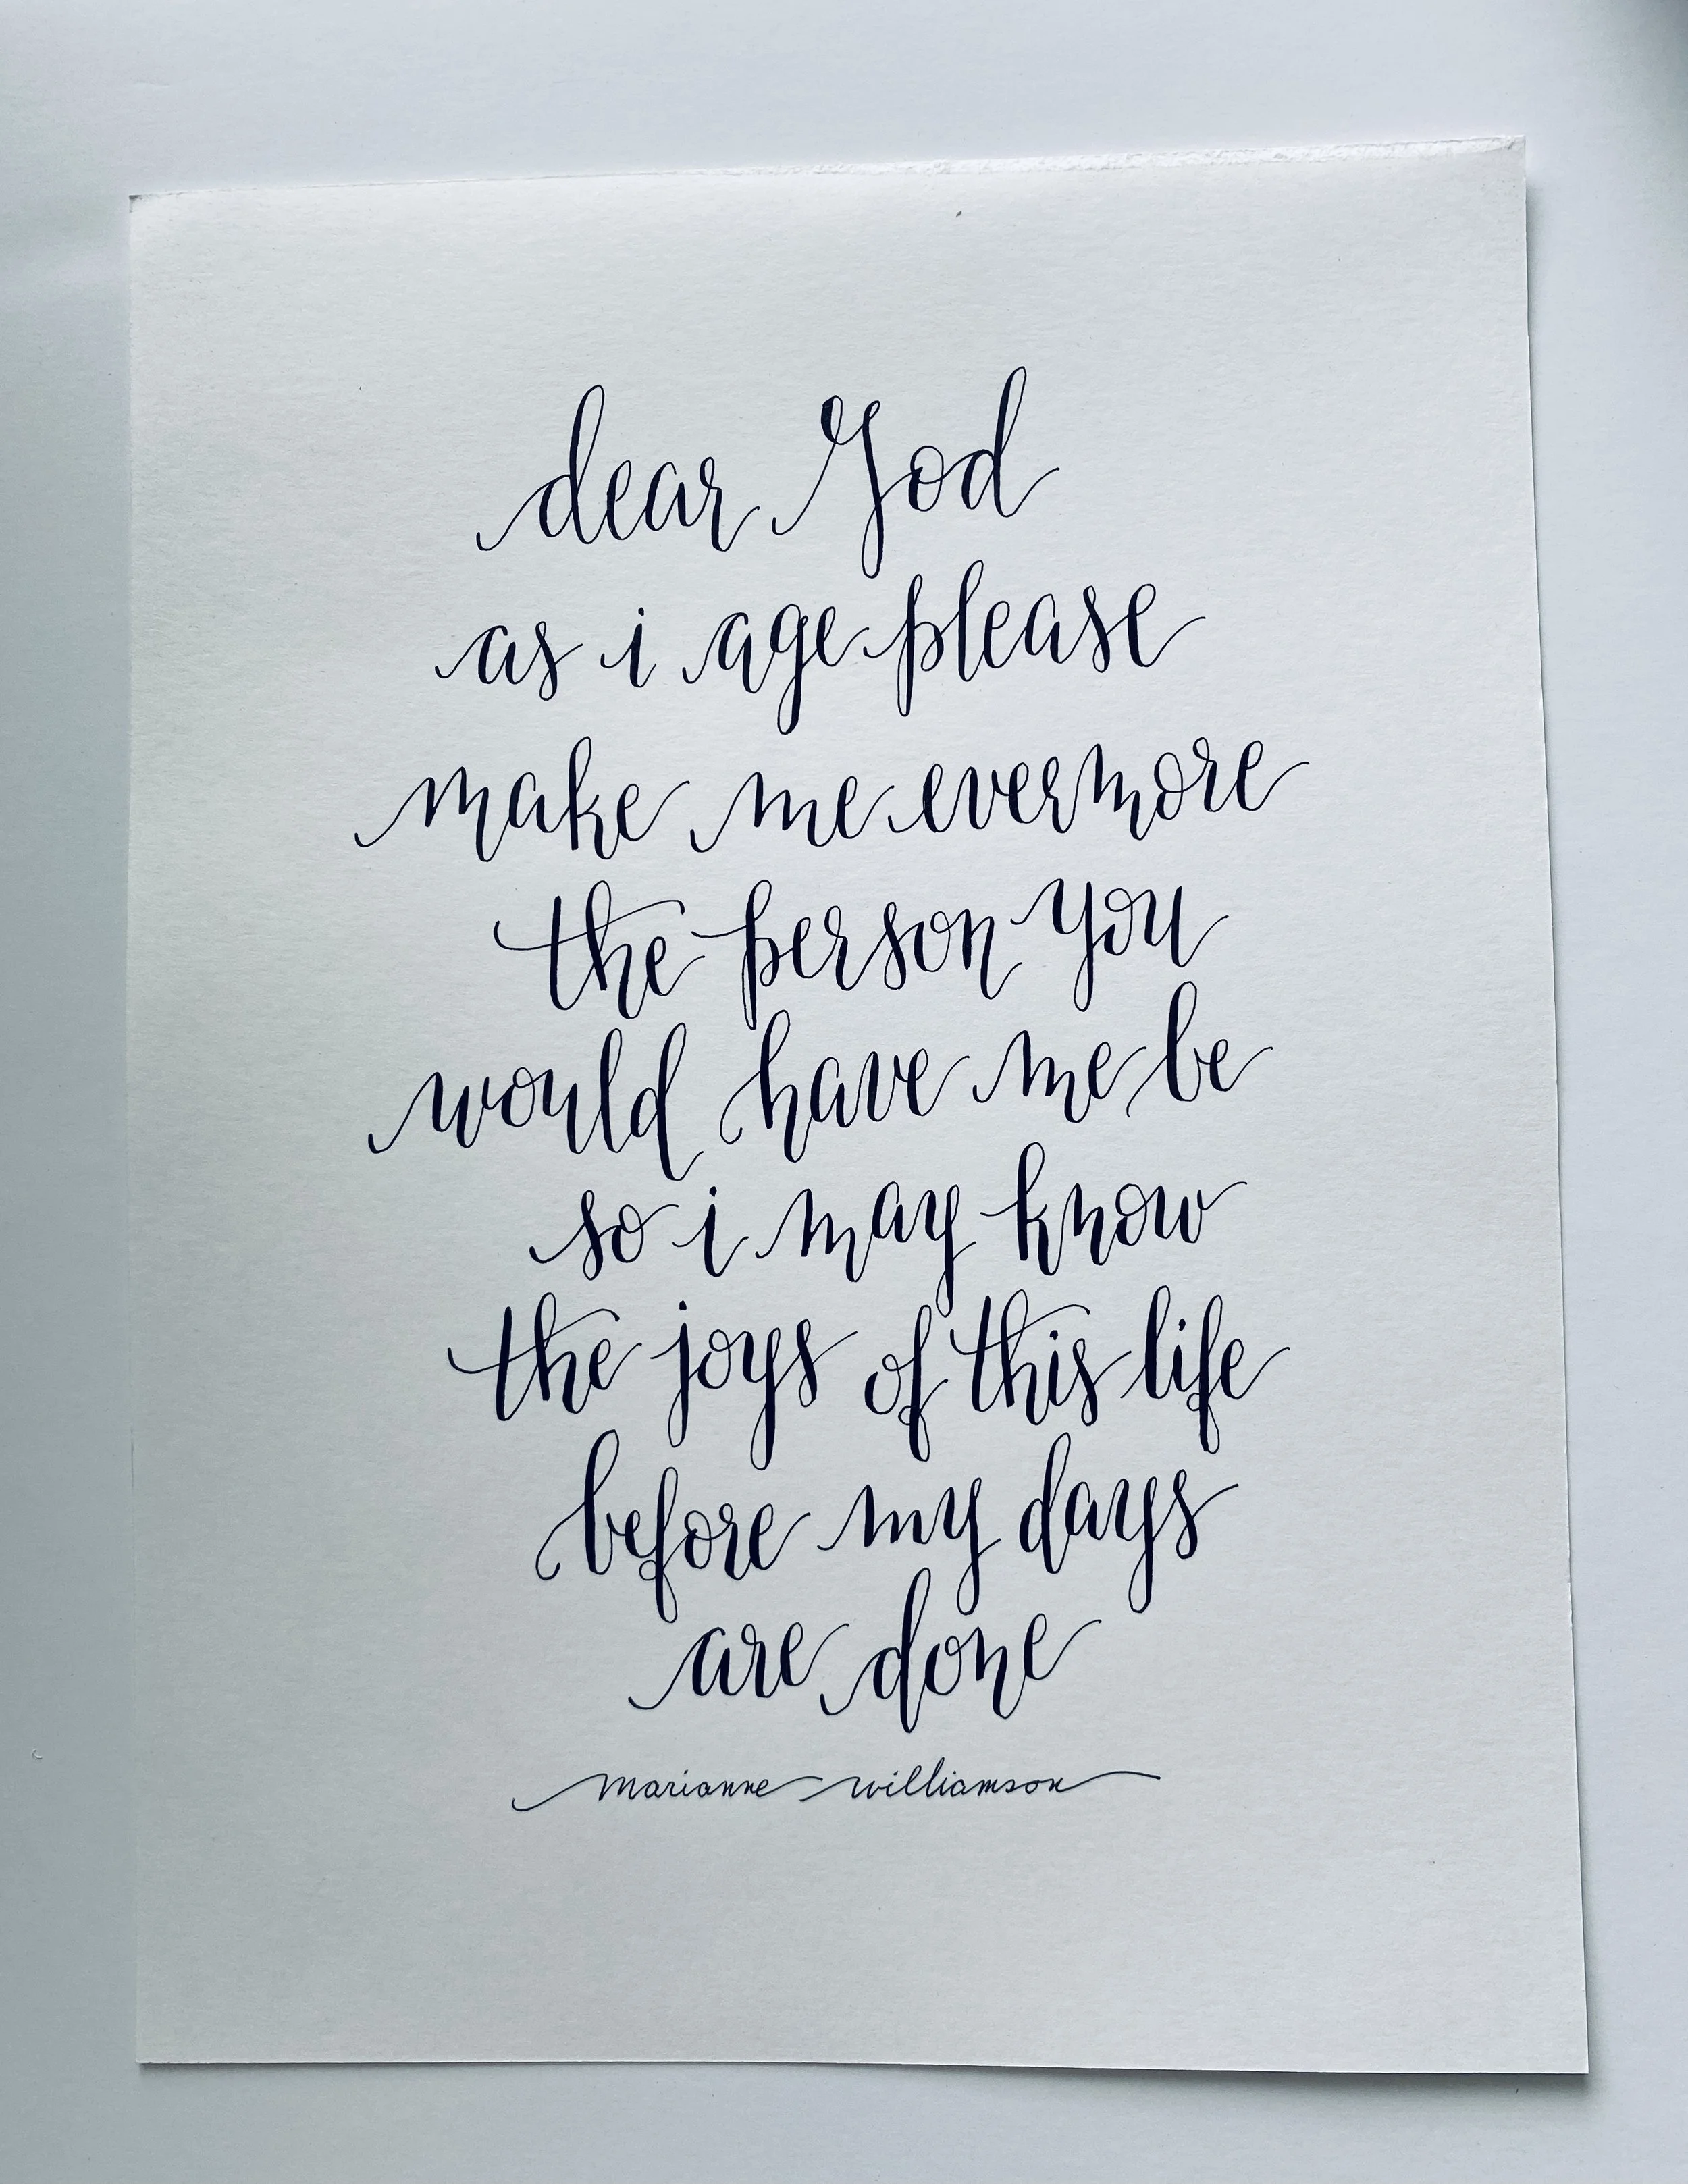 dear God
as i age please
make me evermore
the person you
would have me be
so i may know
the joys of this life
before my days
are done
marianne williamson